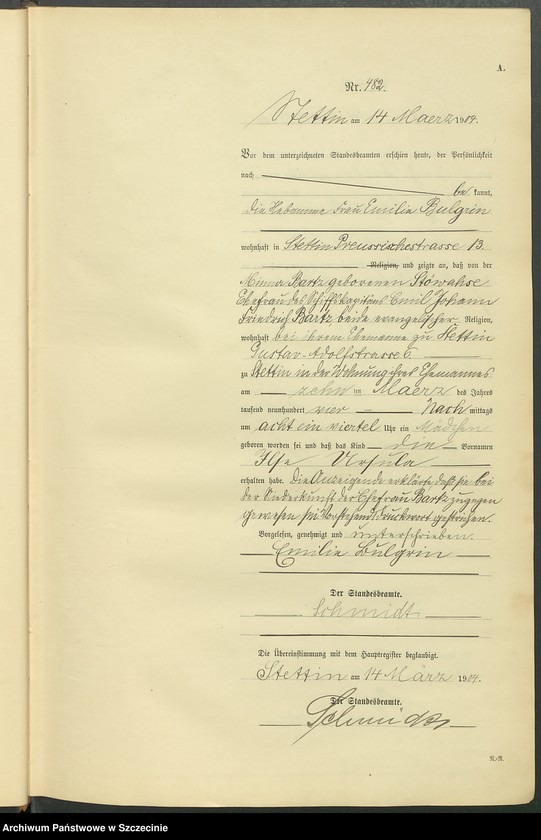 A.
Nr. 482.
Stettin am 14 Maerz 1904.
Vor dem unterzeichneten Standesbeamten erschien heute, der Persönlichkeit
nach be kannt,
die Hebamme Frau Emilie Bulgrin
wohnhaft in Stettin Preussischestrasse 13.
Religion, und zeigte an, daß von der
Minna Bartz geborenen Stöwahse
Ehefrau des Schiffskapitäns Emil Johann
Friedrich Bartz, beide evangelischer Religion,
wohnhaft bei ihrem Ehemanne zu Stettin
Gustav-Adolfstrasse 6.
zu Stettin in der Wohnung ihres Ehemannes
am zehn ten Maerz des Jahres
tausend neunhundert vier Nach mittags
um acht ein viertel Uhr ein Mädchen
geboren worden sei und daß das Kind die Vornamen
Ilse Ursula
erhalten habe. Die Anzeigende erklärte daß sie bei
der Niederkunft der Ehefrau Bartz zugegen
gewesen sei. Vorstehend 1 Druckwort gestrichen.
Vorgelesen, genehmigt und unterschrieben.
Emilie Bulgrin
Der Standesbeamte.
Schmidt
Die Übereinstimmung mit dem Hauptregister beglaubigt.
Stettin am 14 März 1904.
Der Standesbeamte.
Schmidt
Archiwum Państwowe w Szczecinie